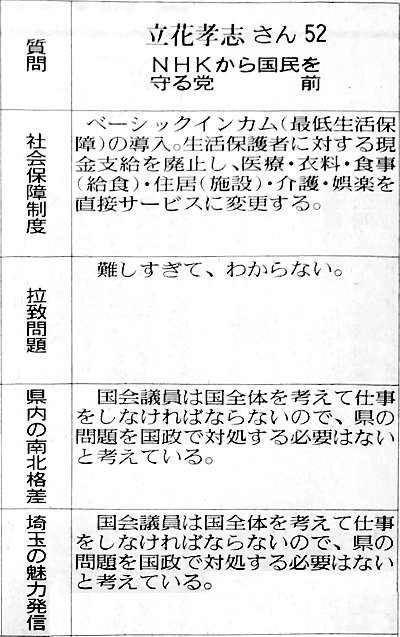 質問
立花孝志さん 52
NHKから国民を
守る党 前
社会保障制度
ベーシックインカム(最低生活保
障)の導入。生活保護者に対する現
金支給を廃止し、医療・衣料・食事
(給食)・住居(施設)・介護・娯楽を
直接サービスに変更する。
拉致問題
難しすぎて、わからない。
県内の南北格差
国会議員は国全体を考えて仕事
をしなければならないので、県の
問題を国政で対処する必要はない
と考えている。
埼玉の魅力発信
国会議員は国全体を考えて仕事
をしなければならないので、県の
問題を国政で対処する必要はない
と考えている。